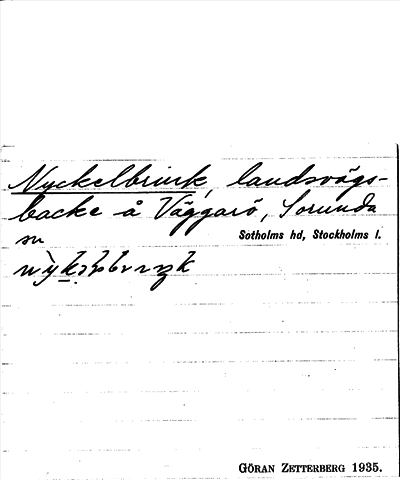 Nyckelbrink, landsvägs-
backe å Väggarö, Sorunda
sn
Sotholms hd, Stockholms l.
GÖRAN ZETTERBERG 1935.